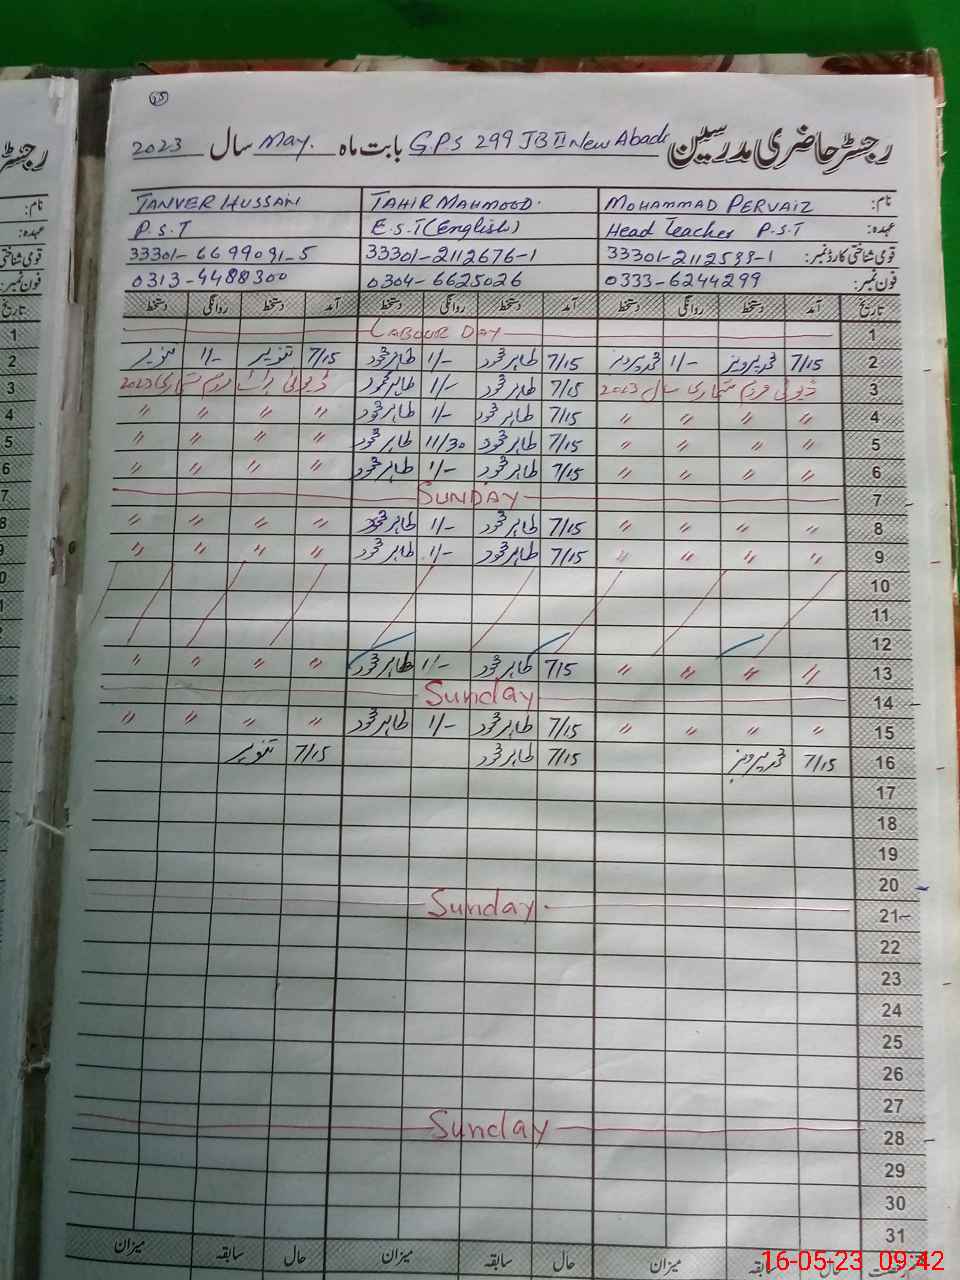 25
رجسٹر حاضری مدرسین G.P.S 299 JB II New Abadi بابت ماہ May. سال 2023
نام: MOHAMMAD PERVAIZ TAHIR MAHMOOD. TANVER HUSSAN
عہدہ: Head Teacher P.S.T E.S.T (English) P.S.T
قومی شناختی کارڈ نمبر: 33301-2112599-1 33301-2112676-1 33301-6699091-5
فون نمبر: 0333-6244299 0304-6625026 0313-4488300
تاریخ آمد دستخط روانگی دستخط آمد دستخط روانگی دستخط آمد دستخط روانگی دستخط
1 LABOUR DAY
2 7/15 محمد پرویز 1/- محمد پرویز 7/15 طاہر محمود 1/- طاہر محمود 7/15 تنویر 1/- تنویر
3 ڈیوٹی مردم شماری سال 2023 7/15 طاہر محمود 1/- طاہر محمود ڈیوٹی مردم شماری 2023
4 〃 〃 〃 〃 7/15 طاہر محمود 1/- طاہر محمود 〃 〃 〃 〃
5 〃 〃 〃 〃 7/15 طاہر محمود 11/30 طاہر محمود 〃 〃 〃 〃
6 〃 〃 〃 〃 7/15 طاہر محمود 1/- طاہر محمود 〃 〃 〃 〃
7 SUNDAY
8 〃 〃 〃 〃 7/15 طاہر محمود 1/- طاہر محمود 〃 〃 〃 〃
9 〃 〃 〃 〃 7/15 طاہر محمود 1/- طاہر محمود 〃 〃 〃 〃
10
11
12
13 〃 〃 〃 〃 7/15 طاہر محمود 1/- طاہر محمود 〃 〃 〃 〃
14 Sunday
15 〃 〃 〃 〃 7/15 طاہر محمود 1/- طاہر محمود 〃 〃 〃 〃
16 7/15 محمد پرویز 7/15 طاہر محمود 7/15 تنویر
17
18
19
20
21 Sunday.
22
23
24
25
26
27
28 Sunday
29
30
31
حال سابقہ میزان حال سابقہ میزان
16-05-23 09:42